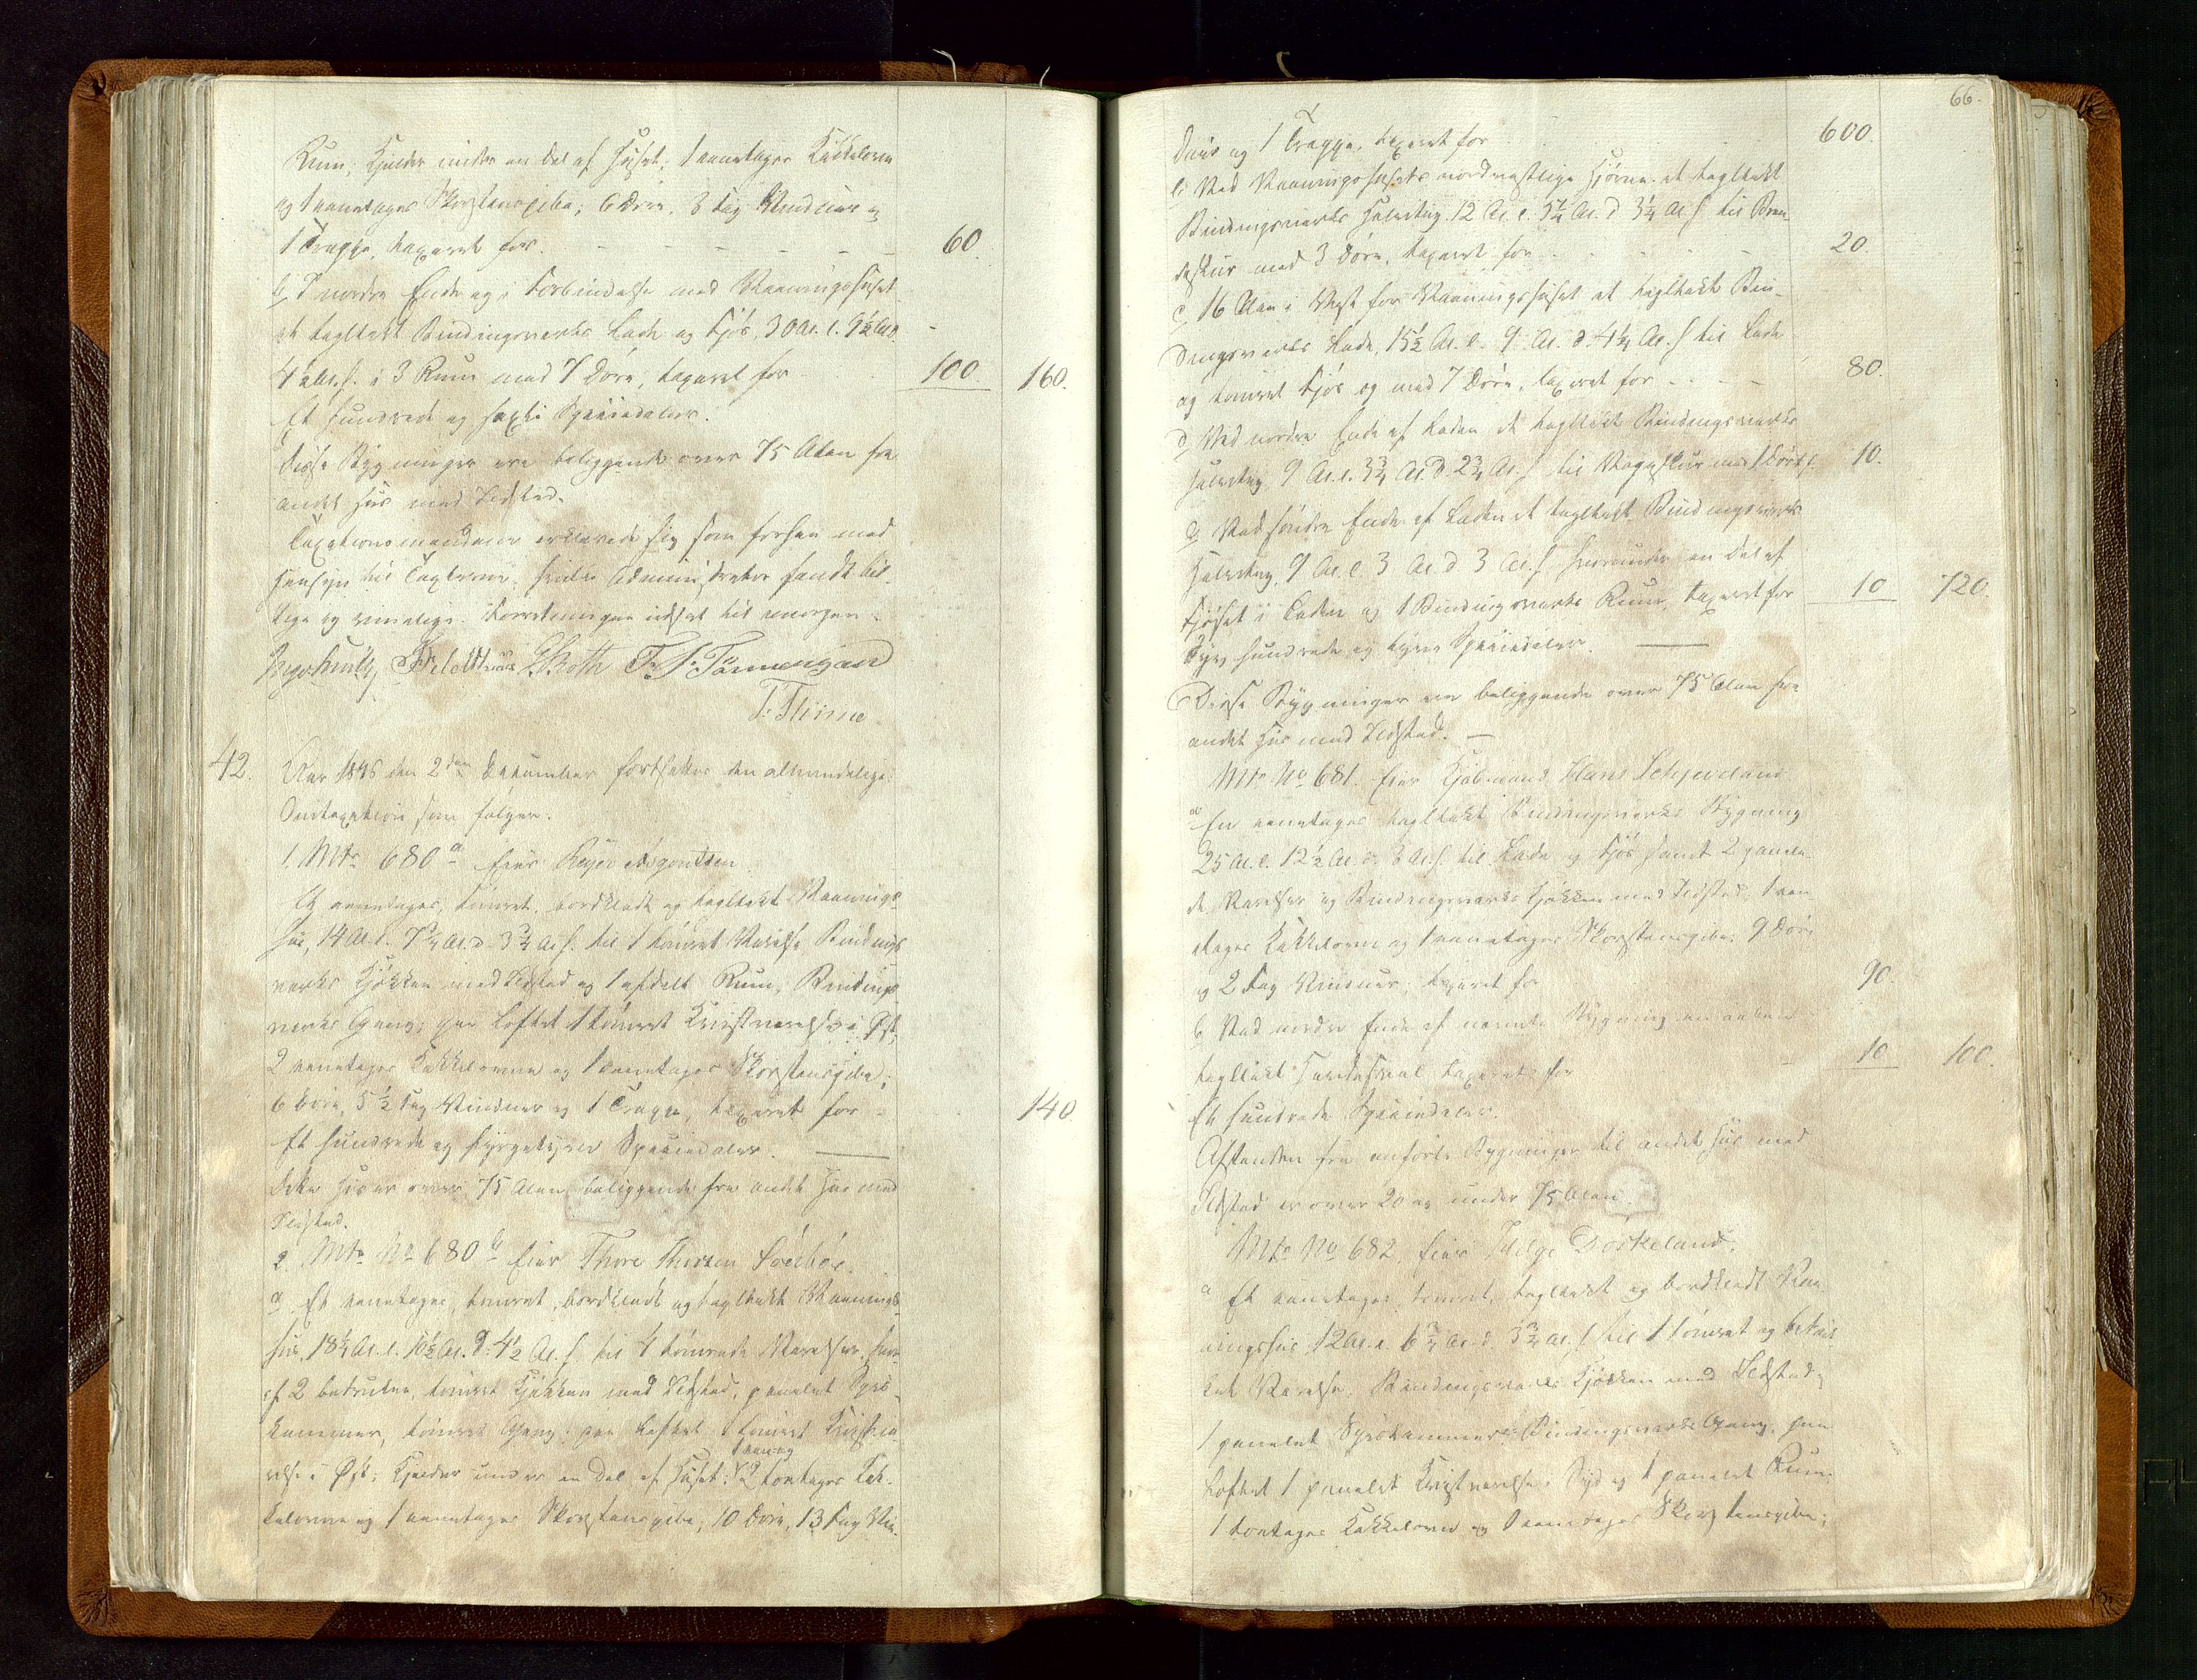 Rum; Kjelder under en Del af Huset; 1 eenetages Kakkelovn
og 1 eenetages Skorstenspibe; 6 Døre, 8 Fag Vinduer og
1 Trappe, taxeret for 60.
b, I nordre Ende og i Forbindelse med Vaaningshuset
et tagltækt Bindingsverks Lade og Fjøs, 30 Al. l. 9½ Al. d.
4 Al. h. i 3 Rum med 7 Døre, taxeret for 100. 160.
Et Hundrede og sexti Speciedaler.
Disse Bygninger ere beliggende over 75 Alen fra
andet Huus med Ildsted.
Taxationsmændene erklærede sig som forhen med
Hensyn til Taxterne, hvilke Administrator fandt bil-
lige og rimelige. Forretningen udsat til imorgen.
Feldthuus G Roth T. T. Tønnengaard
T. Tiime
42. Aar 1846 den 2den December fortsattes den almindelige
Omtaxation som følger.
1. Mtr 680 a Eier Reyer
Et eenetages, tømret, bordklædt og tagltækt Vaanings-
huus, 14 Al. l. 7¾ Al. d. 3¾ Al. h. til 1 tømret Værelse, Bindings-
verks Kjøkken med Ildsted og 1 afdelt Rum, Bindings-
verks Gang; paa Loftet 1 tømret Kvistværelse i Øst;
2 eenetages Kakkelovne og 1 eenetages Skorstenspibe;
6 Døre, 5½ Fag Vinduer og 1 Trappe, taxeret for 140.
Et Hundrede og fyrgetyve Speciedaler.
Dette Huus er over 75 Alen beliggende fra andet Huus med
Ildsted.
2. Mtr No 680 b Eier Thore Thorsen Soeebøe.
a. Et eenetages, tømret, bordklædt og tagltækt Vaanings-
huus, 18¼ Al. l. 10½ Al. d. 4½ Al. h. til 4 tømrede Værelser, hvor-
af 2 betrukne, tømret Kjøkken med Ildsted, panelet Spis-
kammer, tømret Gang; paa Loftet 1 tømret Kvistvæ-
relse i Øst; Kjelder under en Del af Huset; 1 een og 2 toetages Kak-
kelovne og 1 eenetages Skorstenspibe; 10 Døre, 13 Fag Vin-
66.
duer og 1 Trappe, taxeret for 600.
b, Ved Vaaningshusets nordvestlige Hjørne et tagltækt
Bindingsverks Halvtag 12 Al. l. 5¼ Al. d. 3¼ Al. h. til Bræn-
deskur med 3 Døre, taxeret for 20.
c, 16 Alen i Vest for Vaaningshuset et tagltækt Bin-
dingsverks Lade, 15½ Al. l. 9 Al. d. 4¼ Al. h. til Lade
og tømret Fjøs og med 7 Døre, taxeret for 80.
d, Ved nordre Ende af Laden et tagltækt Bindingsverks
Halvtag, 9 Al. l. 3¾ Al. d. 2¾ Al. h. til Vognskur med 1 Dør, t. f. 10.
e, Ved søndre Ende af Laden et tagltækt Bindingsverks
Halvtag, 9 Al. l. 3 Al. d. 3 Al. h. herunder en Del af
Fjøset i Laden og 1 Bindingsverks Rum, taxeret for 10 720.
Syv Hundrede og tyve Speciedaler.
Disse Bygninger ere beliggende over 75 Alen fra
andet Huus med Ildsted.
Mtr No 681. Eier Kjøbmand Hans Schjeveland
a En eenetages tagltækt Bindingsverks Bygning
25 Al. l. 12½ Al. d. 3 Al. h. til Lade og Fjøs samt 2 panele-
de Værelser og Bindingsverks Kjøkken med Ildsted, 1 een-
etages Kakkelovn og 1 eenetages Skorstenspibe; 9 Døre
og 2 Fag Vinduer; taxeret for 90.
b Ved nordre Ende af nævnte Bygning en
tagltækt taxeret for 10 100.
Et Hundrede Speciedaler.
Afstanden fra anførte Bygninger til andet Huus med
Ildsted er over 20 og under 75 Alen.
Mtr No 682, Eier Helge Doskeland.
a Et eenetages, tømret, tagltækt og bordklædt Vaa-
ningshus, 12 Al. l. 6¾ Al. d. 3¾ Al. h. til 1 tømret og betruk-
ket Værelse, Bindingsverks Kjøkken med Ildsted,
1 panelet Spiskammer, Bindingsverks Gang, paa
Loftet 1 panelet Kvistværelse i Syd og 1 panelet Rum;
1 toetages Kakkelovn og 1 eenetages Skorstenspibe;